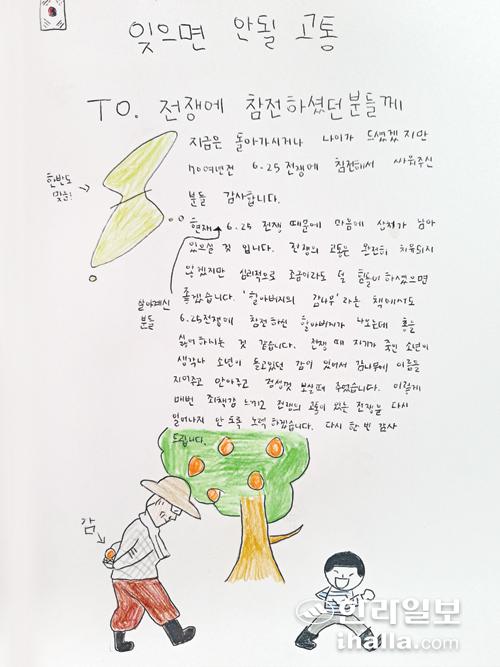 잊으면 안될 고통
TO. 전쟁에 참전하셨던분들께
지금은 돌아가시거나 나이가 드셨겠지만
70여년전 6·25 전쟁에 참전해서 싸워주신
분들 감사합니다.
한반도
맞음!
현재 6.25 전쟁 때문에 마음에 상처가 남아
있으실 것 입니다. 전쟁의 고통은 완전히 치유되지
않겠지만 심리적으로 조금이라도 덜 힘들어 하셨으면
좋겠습니다. '할아버지의 감나무' 라는 책에서도
살아계신
분들
6.25전쟁에 참전하신 할아버지가 나오는데 총을
싫어하시는 것 같습니다. 전쟁 때 자기가 죽인 소년이
생각나 소년이 들고있던 감이 있어서 감나무에 이름을
지어주고 안아주고 정성껏 보살펴 주었습니다. 이렇게
매번 죄책감 느끼고 전쟁의 고통이 있는 전쟁을 다시
일어나지 안 도록 노력 하겠습니다. 다시 한 번 감사
드립니다.
감
한라일보
ihalla.com